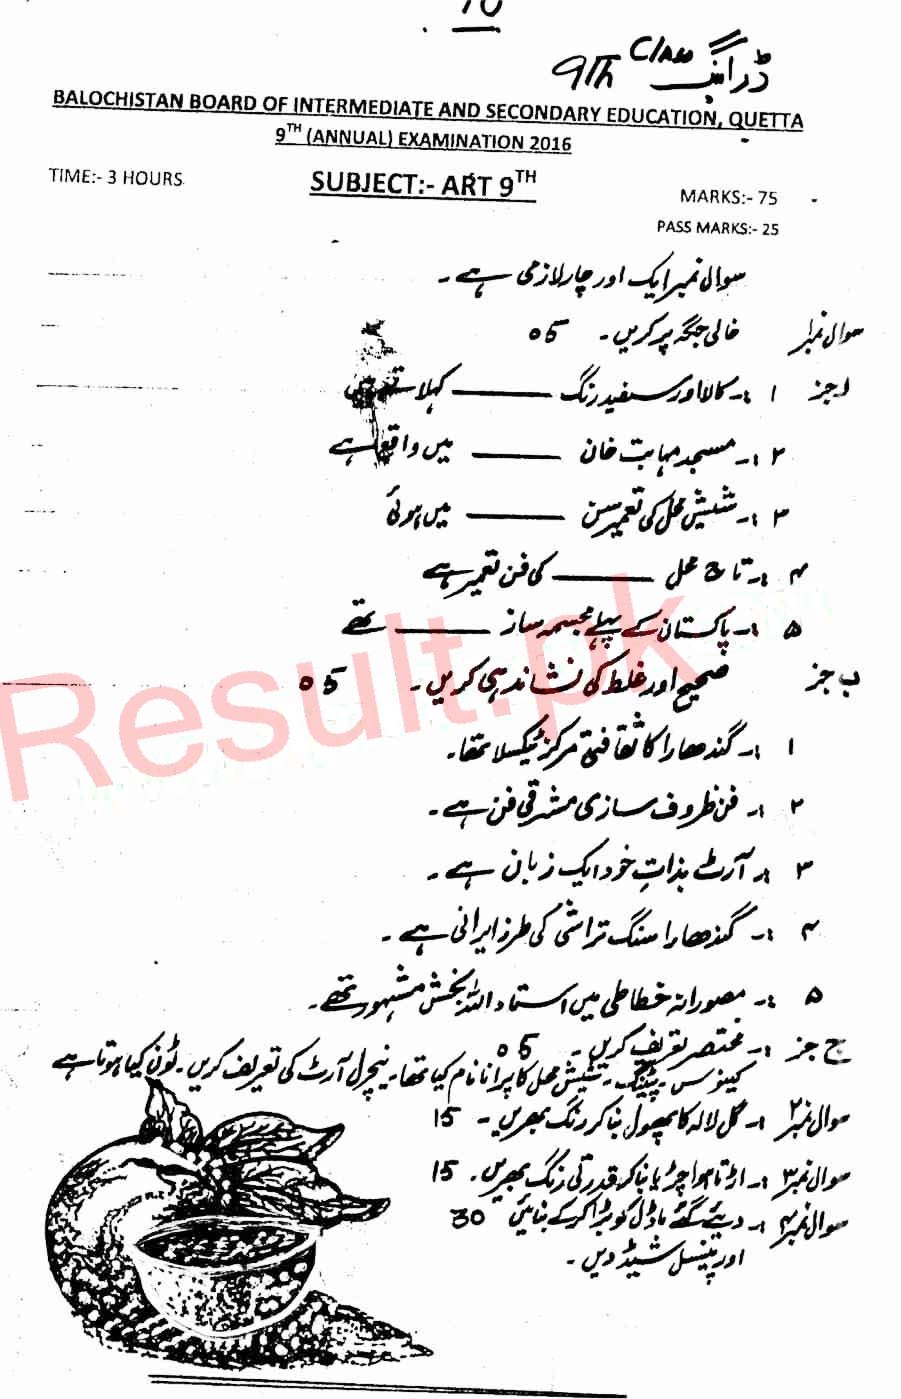 10
9Th Class ڈرائنگ
BALOCHISTAN BOARD OF INTERMEDIATE AND SECONDARY EDUCATION, QUETTA
9TH (ANNUAL) EXAMINATION 2016
TIME:- 3 HOURS
SUBJECT:- ART 9TH
MARKS:- 75
PASS MARKS:- 25
سوال نمبر ایک اور چار لازمی ہے۔
سوال نمبر ۱ خالی جگہ پر کریں۔ 05
ا جز ۱ :۔ کالا اور سفید رنگ ——— کہلاتے ہیں
۲ :۔ مسجد مہابت خان ——— میں واقع ہے
۳ :۔ شیش محل کی تعمیر سن ——— میں ہوئی
۴ :۔ تاج محل ——— کی فن تعمیر ہے
۵ :۔ پاکستان کے پہلے مجسمہ ساز ——— تھے
ب جز صحیح اور غلط کی نشاندہی کریں۔ 05
۱ :۔ گندھارا کا ثقافتی مرکز ٹیکسلا تھا۔
۲ :۔ فن ظروف سازی مشرقی فن ہے۔
۳ :۔ آرٹ بذات خود ایک زبان ہے۔
۴ :۔ گندھارا سنگ تراشی کی طرز ایرانی ہے۔
۵ :۔ مصورانہ خطاطی میں استاد اللہ بخش مشہور تھے۔
ج جز :۔ مختصر تعریف کریں۔ 05
کینوس۔ پینٹنگ۔ شیش محل کا پرانا نام کیا تھا۔ نیچرل آرٹ کی تعریف کریں۔ ٹون کیا ہوتا ہے
سوال نمبر ۲ :۔ گل لالہ کا پھول بنا کر رنگ بھریں۔ 15
سوال نمبر ۳ :۔ اڑتا ہوا چڑیا بنا کر قدرتی رنگ بھریں۔ 15
سوال نمبر ۴ :۔ دیئے گئے ماڈل کو بڑا کر کے بنائیں 30
اور پینسل شیڈ دیں۔
Result.pk